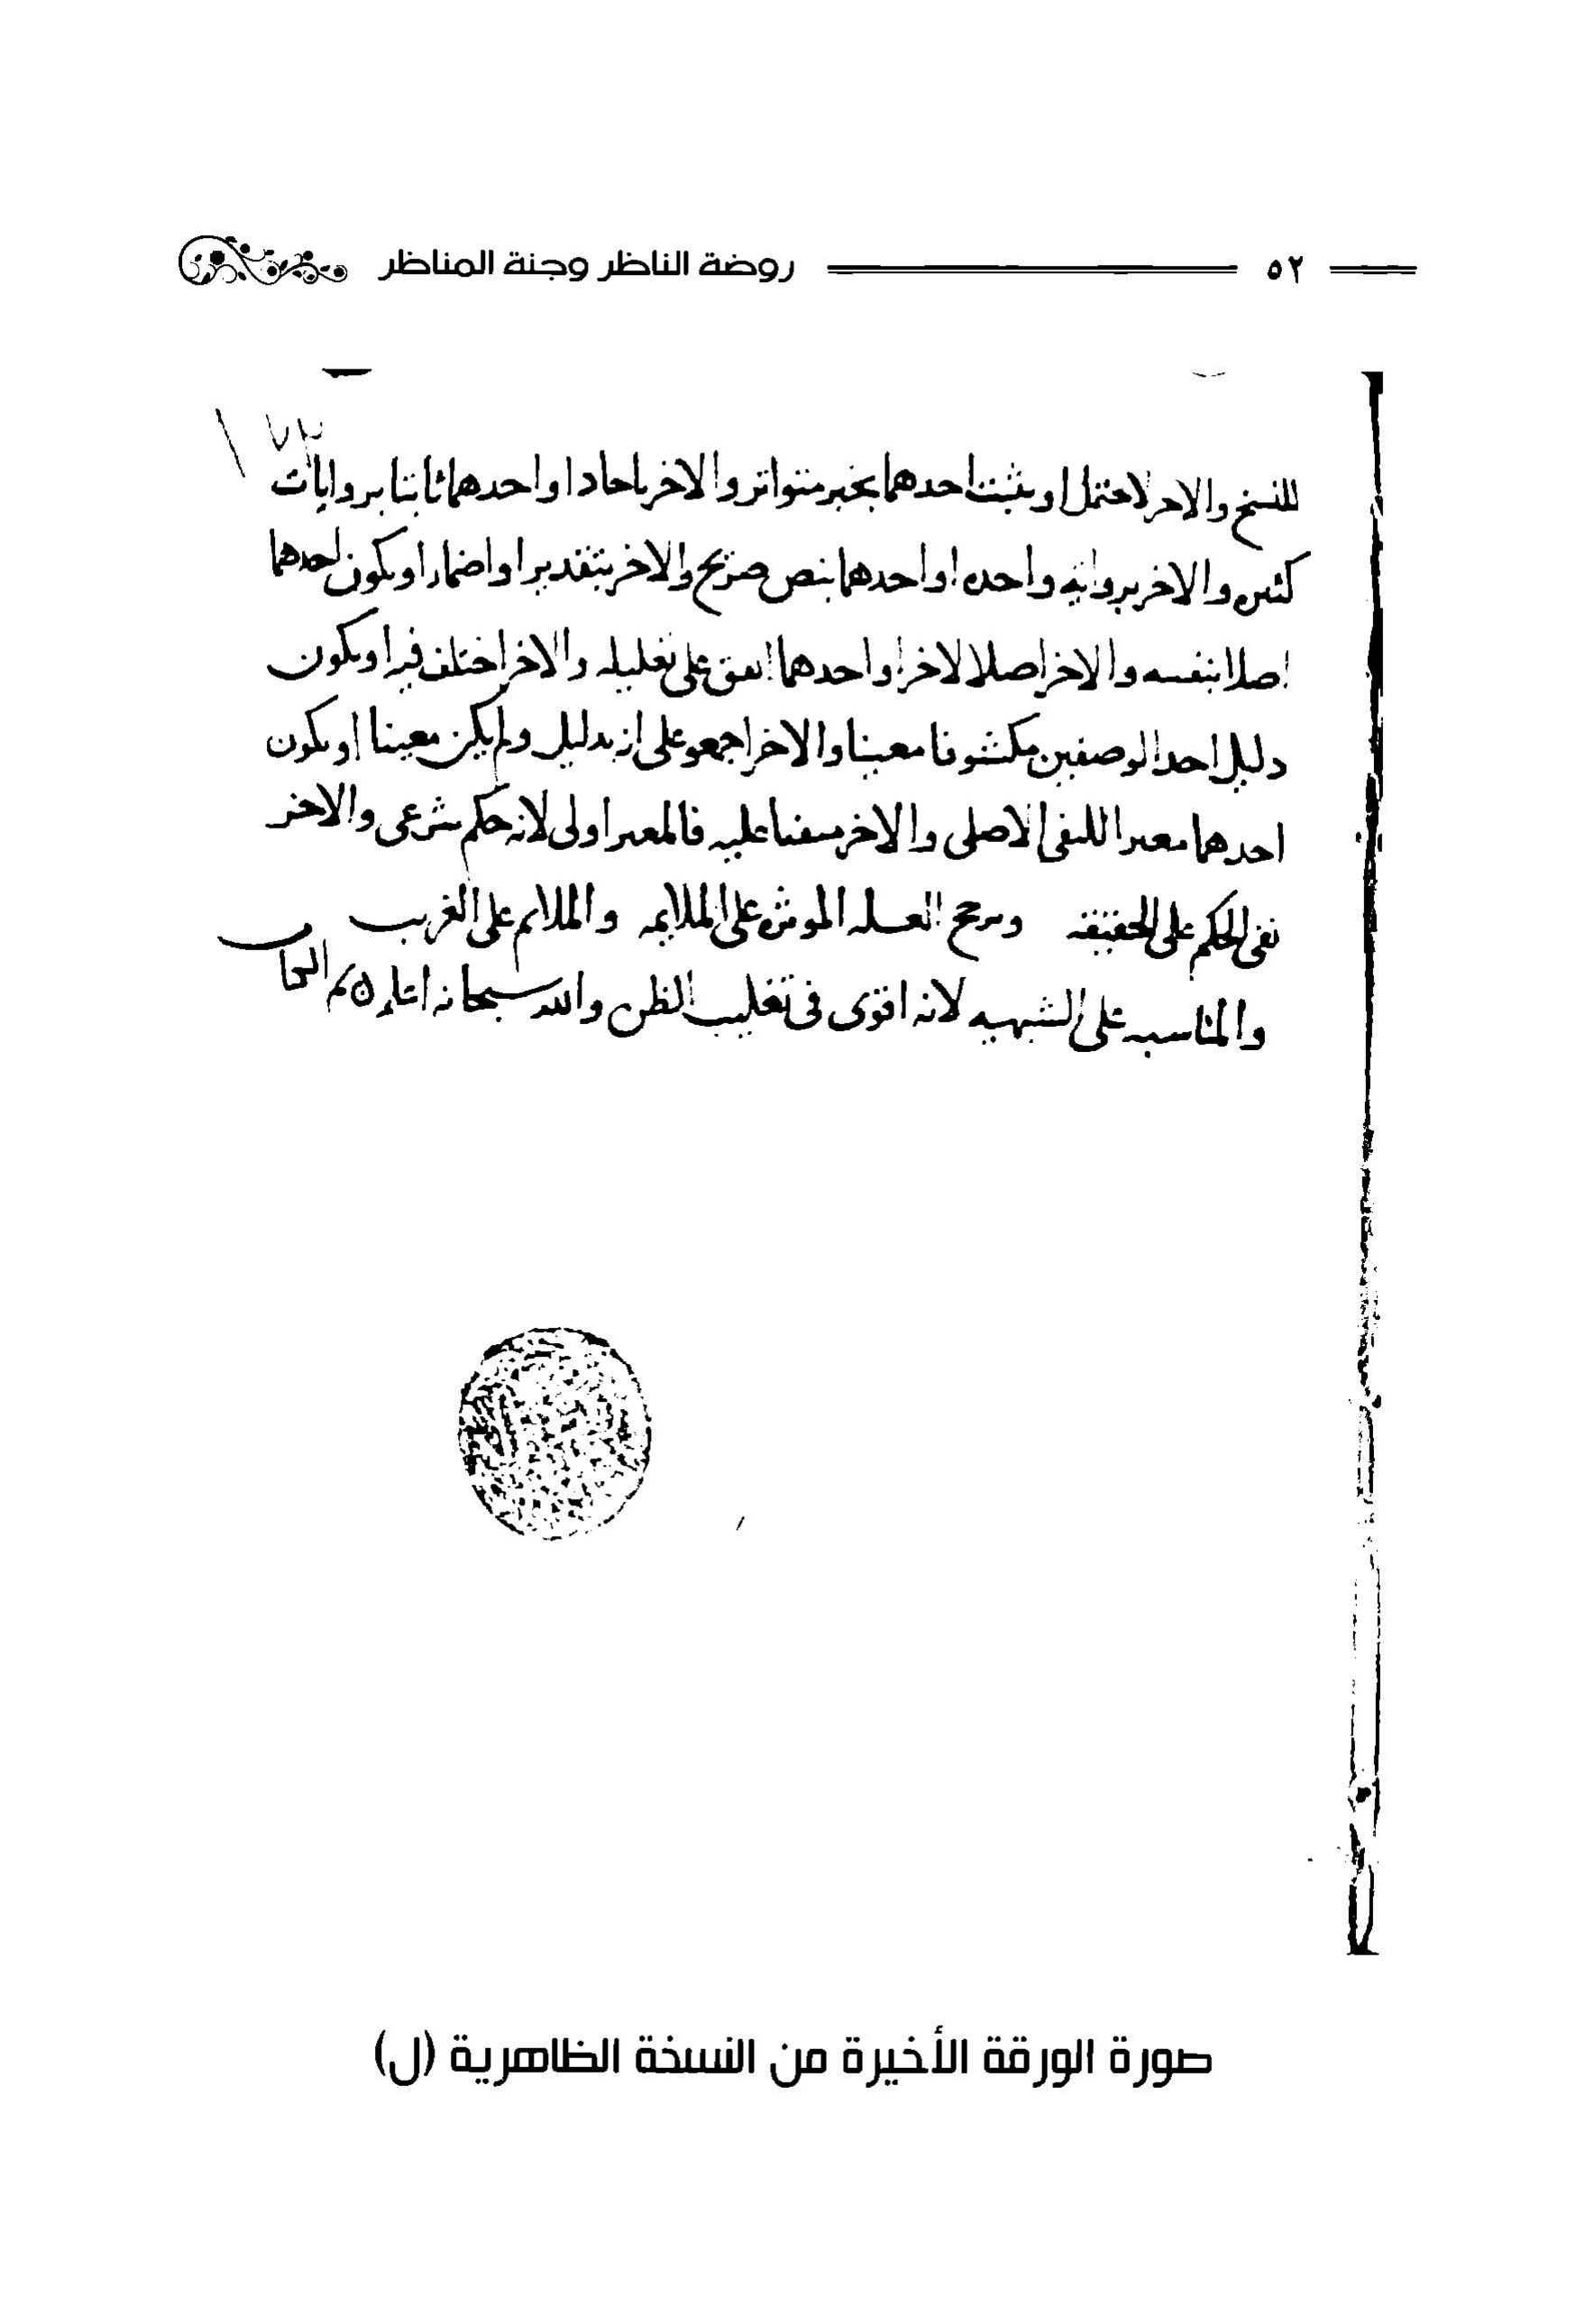 ٥٢ روضة الناظر وجنة المناظر
١٧٣
للنسخ والاخر لا يحتمل او يثبت احدهما بخبر متواتر والاخر باحاد او احدهما ثابتا بروايات
كثيره والاخر بروايه واحده او احدهما بنص صريح والاخر بتقدير او اضمار او يكون احدهما
اصلا بنفسه والاخر اصلا لاخر او احدهما اتفق على تعليله والاخر اختلف فيه او يكون
دليل احد الوصفين مكشوفا معينا والاخر اجمعوا على انه بدليل ولم يكن معينا او يكون
احدهما مغيرا للنفي الاصلي والاخر مبقيا عليه فالمغير اولى لانه حكم شرعي والاخر
نفي الحكم على الحقيقه ويرجح العله الموثره على الملايمه والملايم على الغريب
والمناسبه على الشبهيه لانه اقوى في تغليب الظن والله سبحانه اعلم تم الكتاب
صورة الورقة الأخيرة من النسخة الظاهرية (ل)